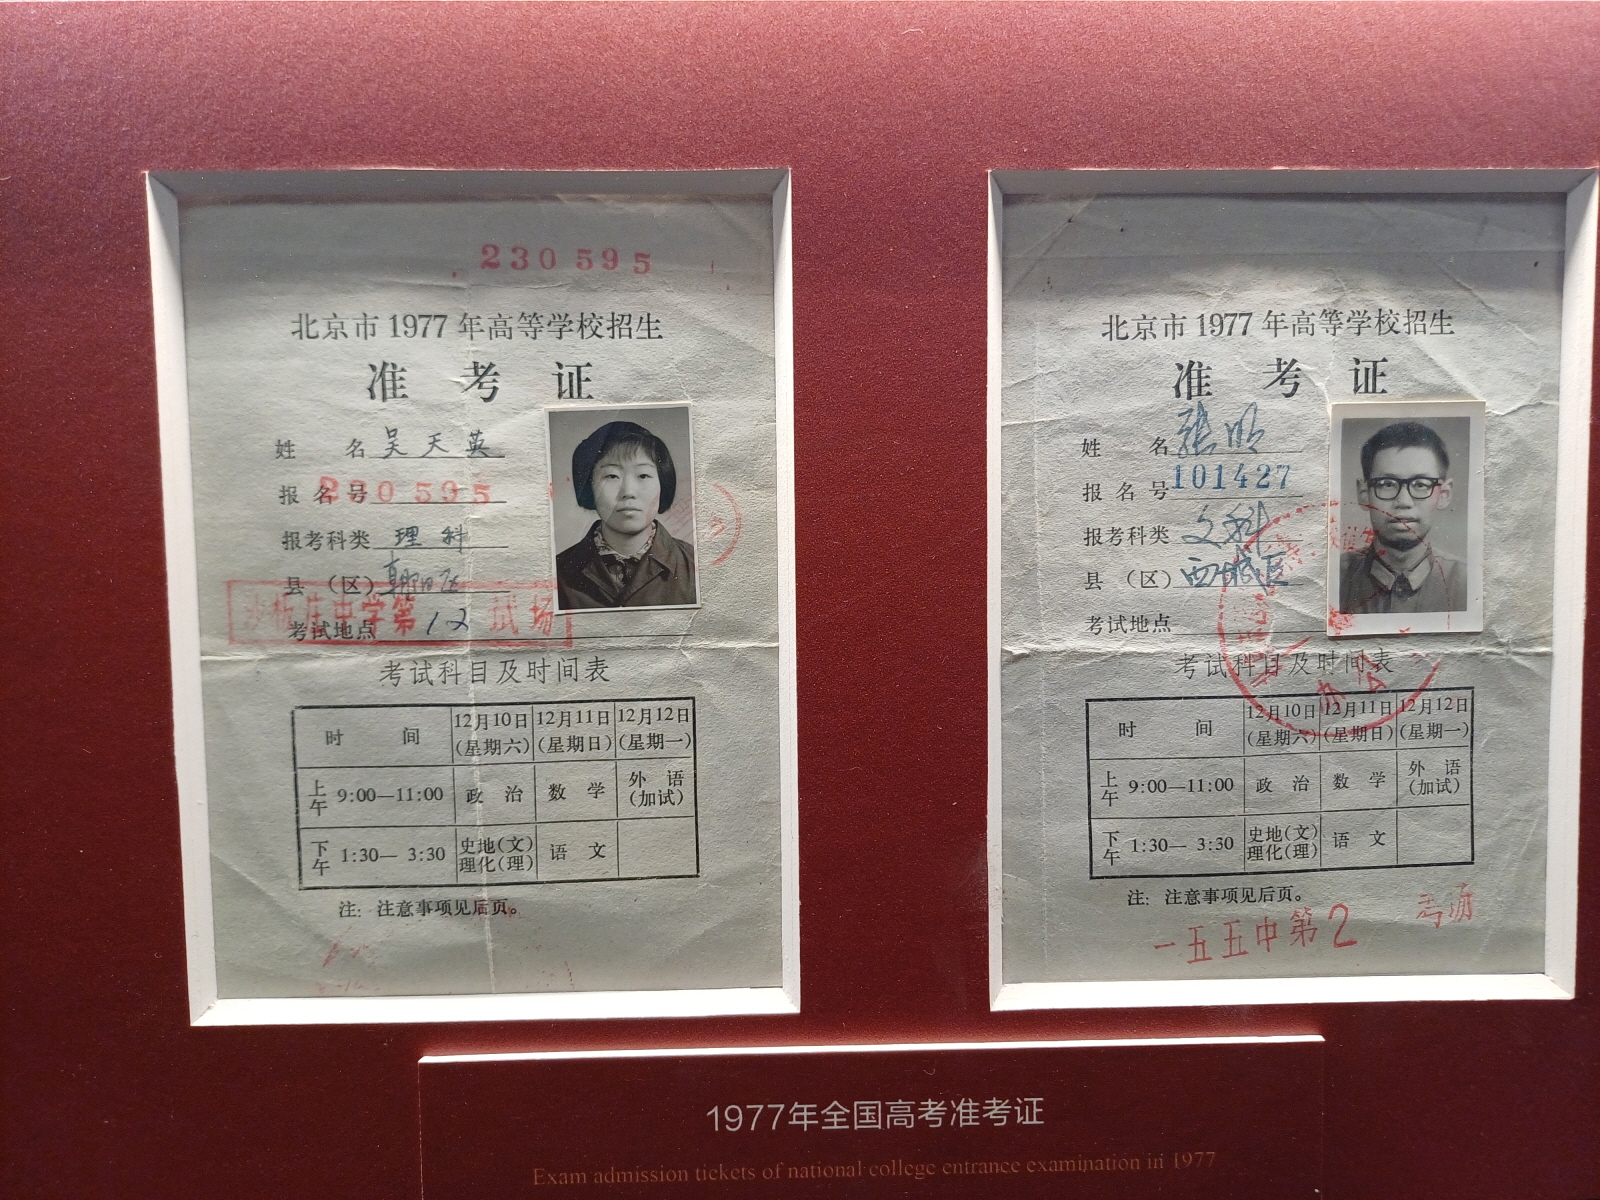 230595
北京市1977年高等学校招生
准考证
姓名 吴天英
报名号 230595
报考科类 理科
县（区）朝阳区
考试地点 中学第12试场
考试科目及时间表
时间 12月10日(星期六) 12月11日(星期日) 12月12日(星期一)
上午 9:00—11:00 政治 数学 外语(加试)
下午 1:30—3:30 史地(文)理化(理) 语文
注：注意事项见后页。
北京市1977年高等学校招生
准考证
姓名 张明
报名号 101427
报考科类 文科
县（区）西城区
考试地点
考试科目及时间表
时间 12月10日(星期六) 12月11日(星期日) 12月12日(星期一)
上午 9:00—11:00 政治 数学 外语(加试)
下午 1:30—3:30 史地(文)理化(理) 语文
注：注意事项见后页。
一五五中第2
1977年全国高考准考证
Exam admission tickets of national college entrance examination in 1977